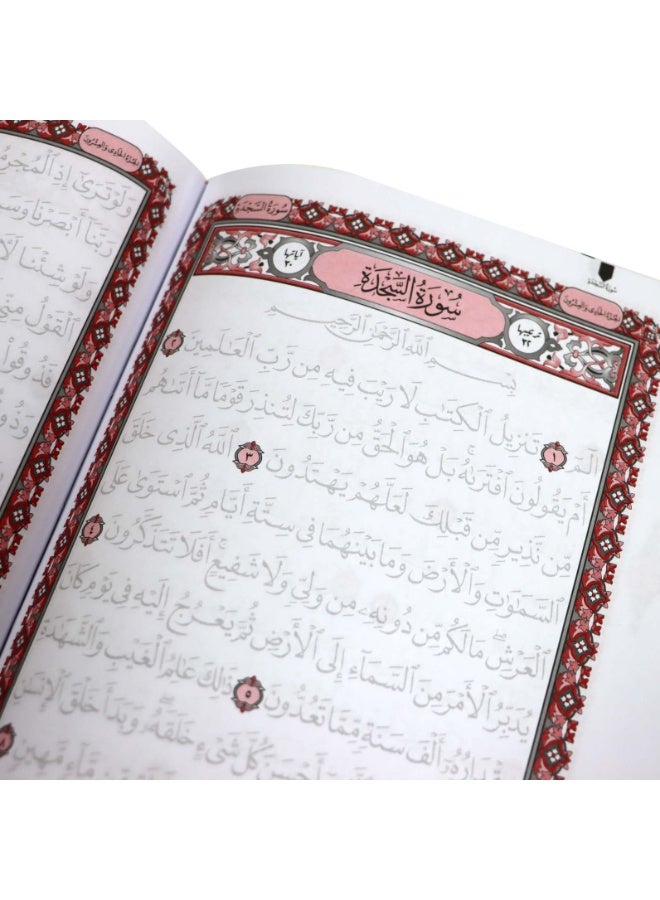 الجزء الحادي والعشرون
وَلَوْ تَرَىٰٓ إِذِ ٱلْمُجْرِمُ
رَبَّنَآ أَبْصَرْنَا وَسَمِ
وَلَوْ شِئْنَا لَأ
ٱلْقَوْلُ مِنِّي
فَذُوقُوا
وَذُو
سورة السجدة
سورة السجدة
الجزء الحادي والعشرون
آياتها ٣٠
سُورَةُ السَّجْدَةِ
ترتيبها ٣٢
بِسْمِ ٱللَّهِ ٱلرَّحْمَٰنِ ٱلرَّحِيمِ
الٓمٓ ١ تَنزِيلُ ٱلْكِتَٰبِ لَا رَيْبَ فِيهِ مِن رَّبِّ ٱلْعَٰلَمِينَ ٢
أَمْ يَقُولُونَ ٱفْتَرَىٰهُ بَلْ هُوَ ٱلْحَقُّ مِن رَّبِّكَ لِتُنذِرَ قَوْمًا مَّآ أَتَىٰهُم
مِّن نَّذِيرٍ مِّن قَبْلِكَ لَعَلَّهُمْ يَهْتَدُونَ ٣ ٱللَّهُ ٱلَّذِي خَلَقَ
ٱلسَّمَٰوَٰتِ وَٱلْأَرْضَ وَمَا بَيْنَهُمَا فِي سِتَّةِ أَيَّامٍ ثُمَّ ٱسْتَوَىٰ عَلَى
ٱلْعَرْشِ مَا لَكُم مِّن دُونِهِۦ مِن وَلِيٍّ وَلَا شَفِيعٍ أَفَلَا تَتَذَكَّرُونَ ٤
يُدَبِّرُ ٱلْأَمْرَ مِنَ ٱلسَّمَآءِ إِلَى ٱلْأَرْضِ ثُمَّ يَعْرُجُ إِلَيْهِ فِي يَوْمٍ كَانَ
مِقْدَارُهُۥٓ أَلْفَ سَنَةٍ مِّمَّا تَعُدُّونَ ٥ ذَٰلِكَ عَٰلِمُ ٱلْغَيْبِ وَٱلشَّهَٰدَةِ
أَحْسَنَ كُلَّ شَيْءٍ خَلَقَهُۥ وَبَدَأَ خَلْقَ ٱلْإِنسَٰنِ
مَّآءٍ مَّهِينٍ ٨